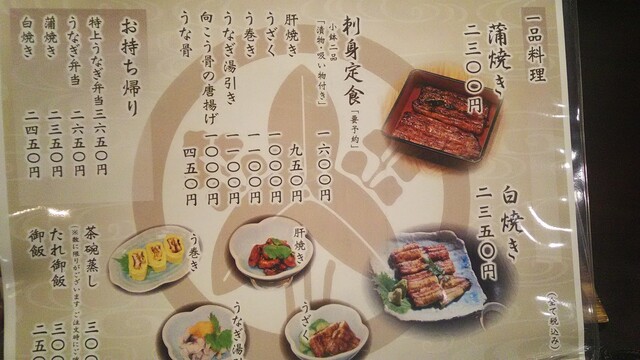 一品料理
蒲焼き
二三〇〇円
白焼き
二三五〇円
(全て税込み)
刺身定食「要予約」
小鉢二品
「漬物・吸い物付き」
一六〇〇円
肝焼き
九五〇円
うざく
一〇〇〇円
う巻き
一一〇〇円
うなぎ湯引き
一一〇〇円
向こう骨の唐揚げ
一〇〇〇円
うな骨
四五〇円
お持ち帰り
特上うなぎ弁当
三六五〇円
うなぎ弁当
二六五〇円
蒲焼き
二三五〇円
白焼き
二四五〇円
肝焼き
う巻き
うざ
うなぎ湯
茶碗蒸し
三〇〇
(※数に限りがございます。ご注文時にご
たれ御飯
三〇〇
御飯
二五〇